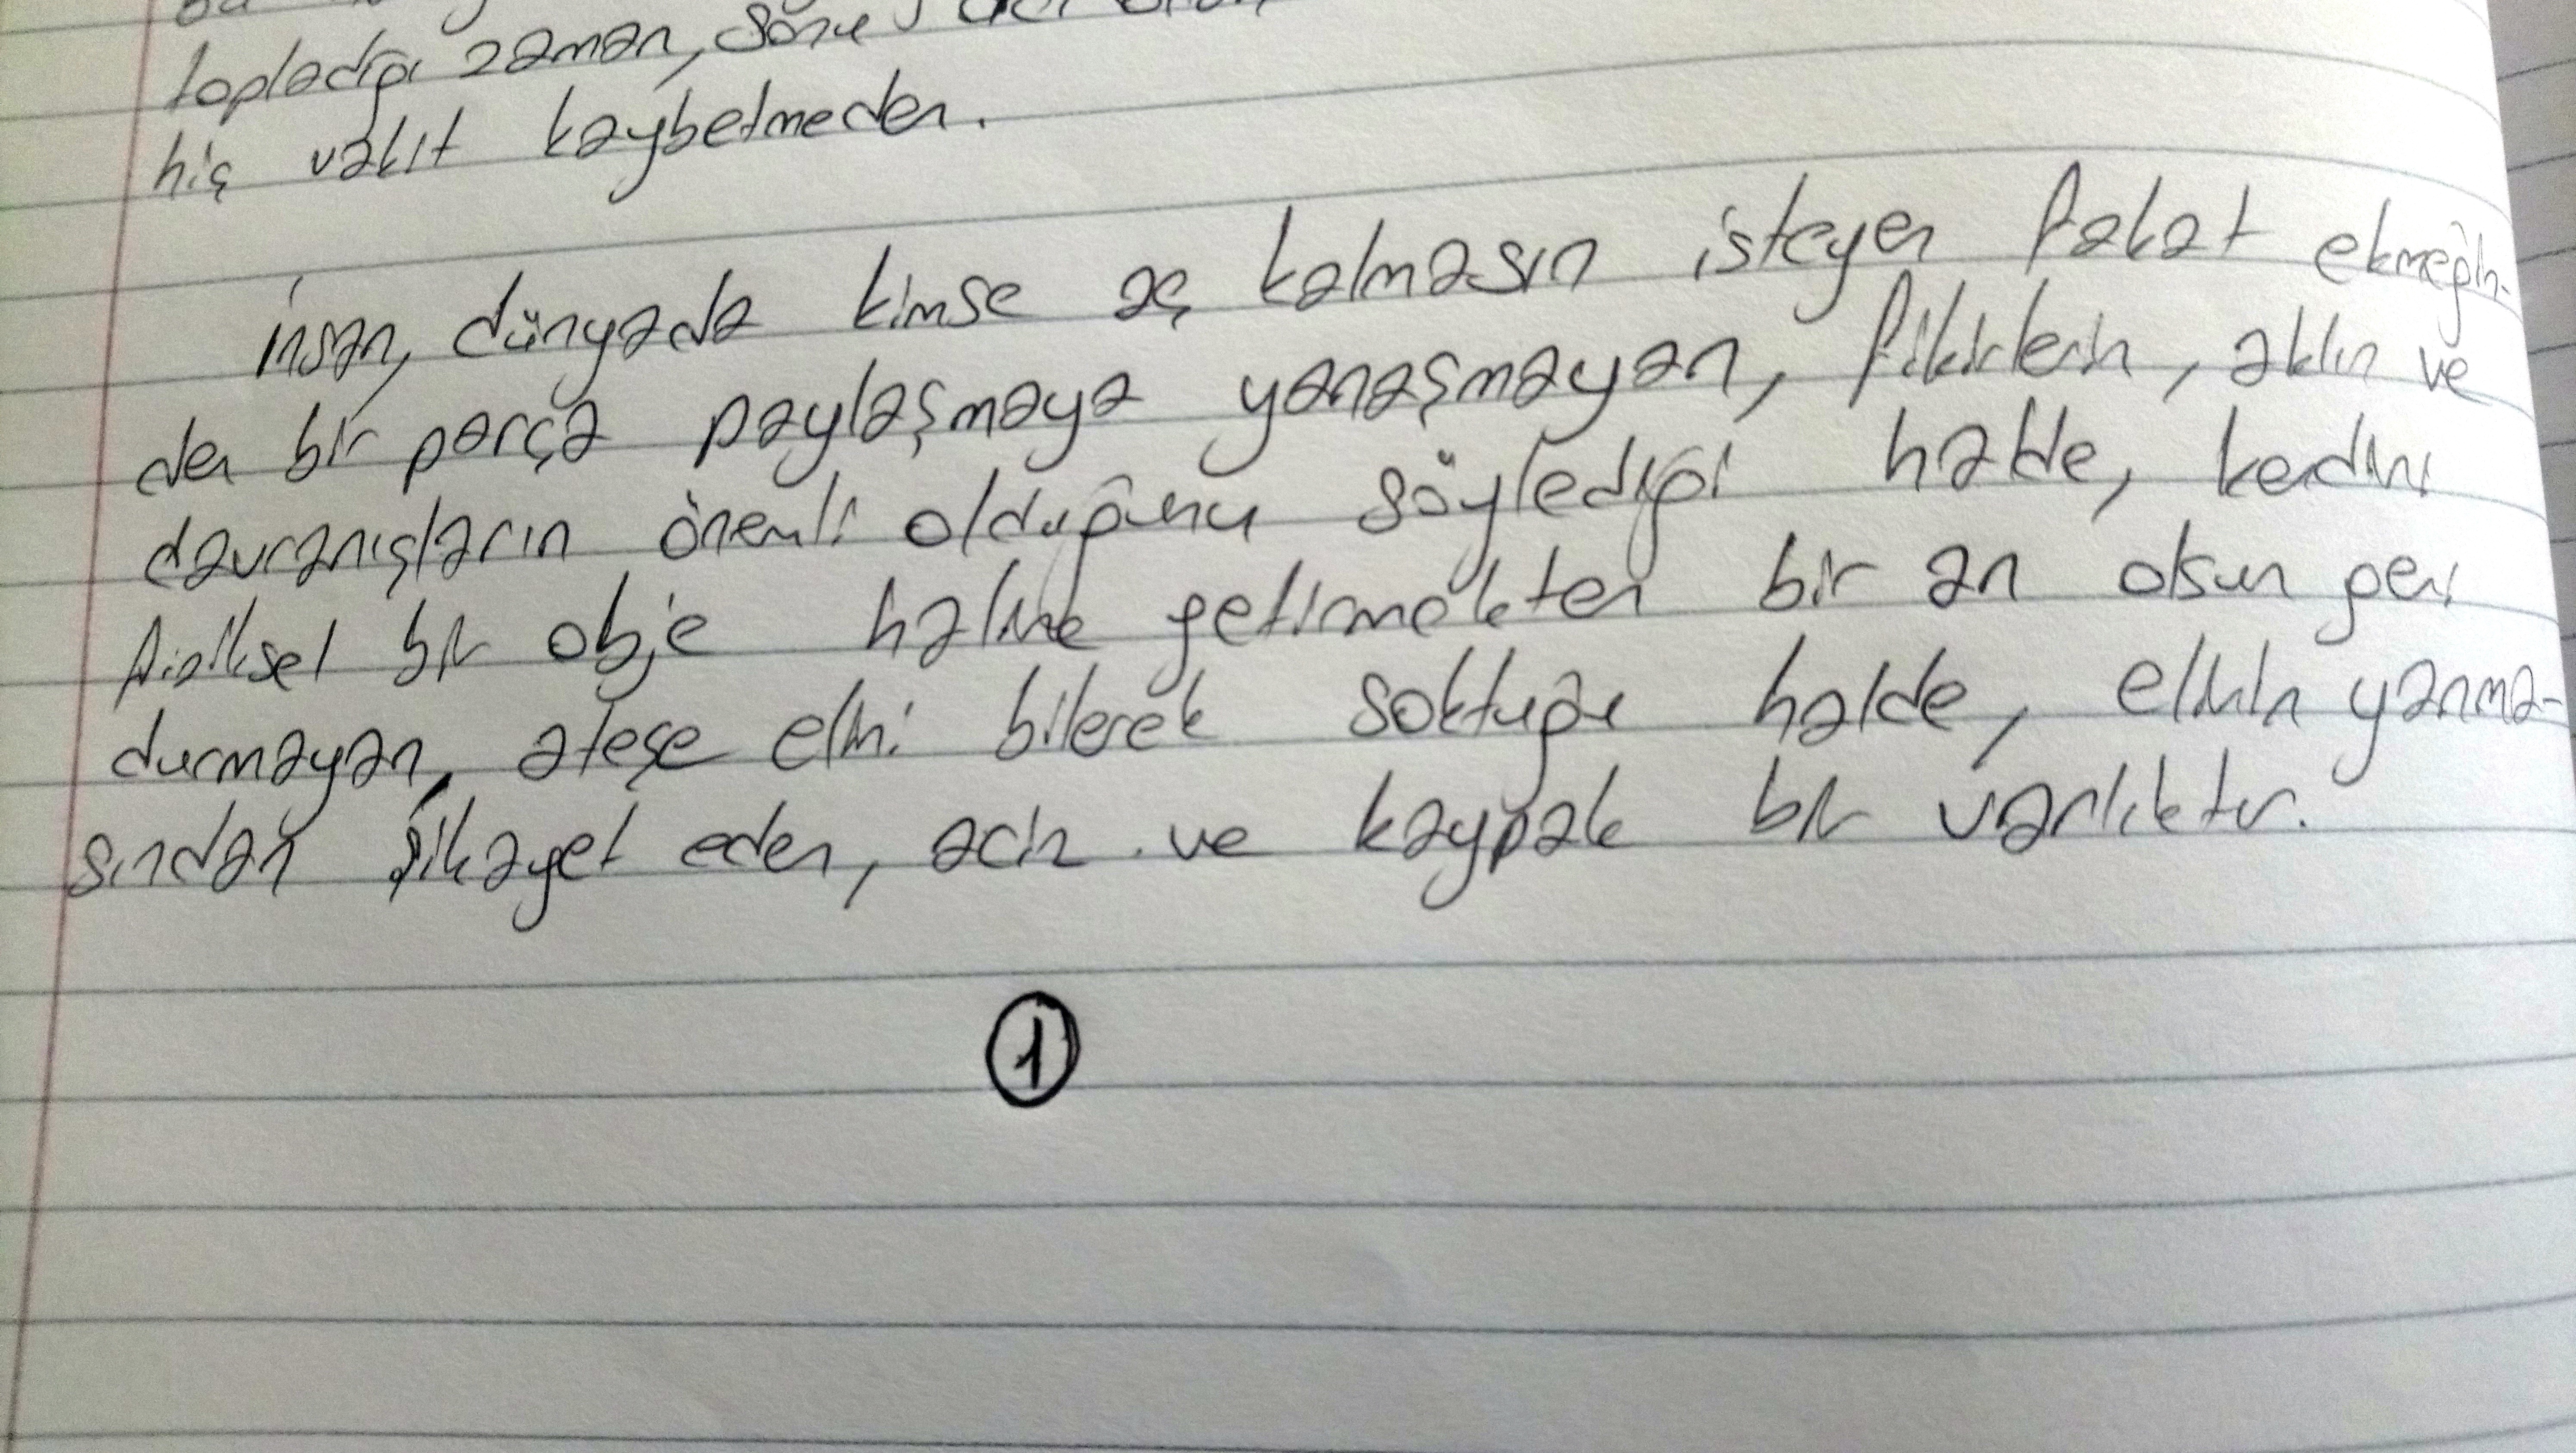 topladığı zaman, sonu
hiç vakit kaybetmeden.
İnsan, dünyada kimse aç kalmasın isteyen fakat ekmeğin-
den bir parça paylaşmaya yanaşmayan, fikirlerin, aklın ve
davranışların önemli olduğunu söylediği halde, kendini
fiziksel bir obje haline getirmekten bir an olsun geri
durmayan, ateşe elini bilerek soktuğu halde, elinin yanma-
sından şikayet eden, aciz ve kaypak bir varlıktır.
1